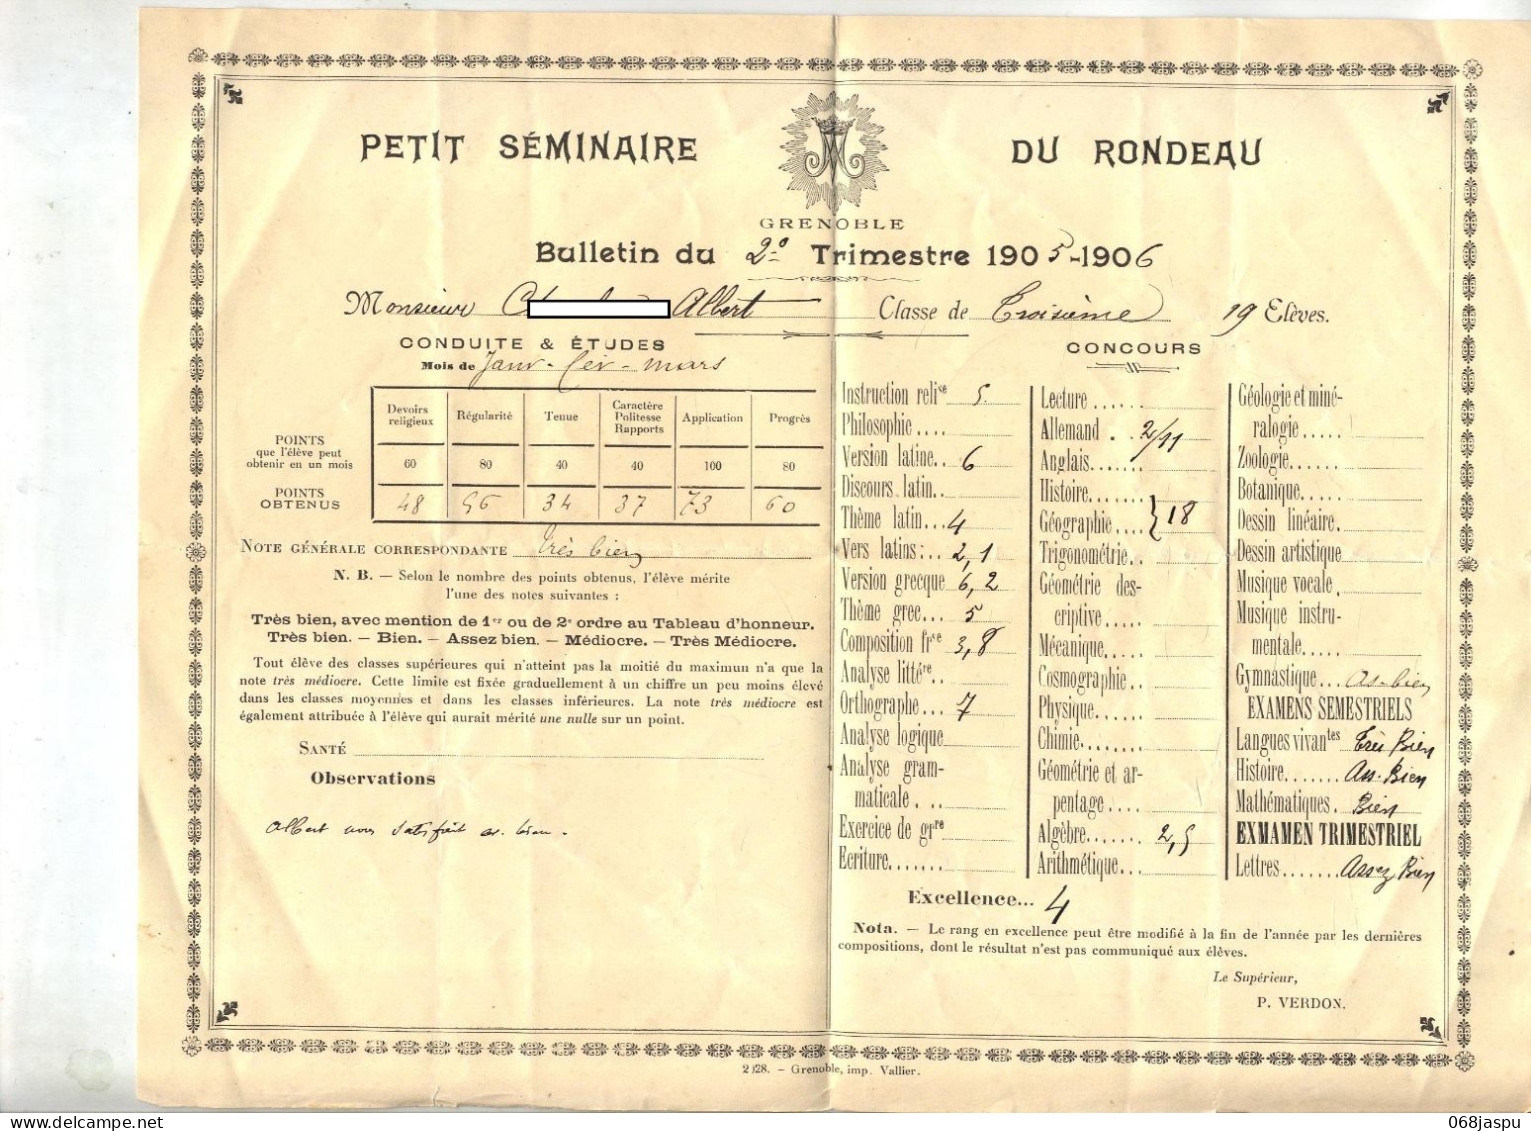 PETIT SÉMINAIRE DU RONDEAU
GRENOBLE
Bulletin du 2º Trimestre 1905-1906
Monsieur Albert Classe de Troisième 19 Elèves.
CONDUITE & ÉTUDES
Mois de Janv - fév - mars
Devoirs religieux Régularité Tenue Caractère Politesse Rapports Application Progrès
POINTS
que l'élève peut
obtenir en un mois 60 80 40 40 100 80
POINTS
OBTENUS 48 56 34 37 73 60
NOTE GÉNÉRALE CORRESPONDANTE très bien
N. B. — Selon le nombre des points obtenus, l'élève mérite
l'une des notes suivantes :
Très bien, avec mention de 1er ou de 2e ordre au Tableau d'honneur.
Très bien. — Bien. — Assez bien. — Médiocre. — Très Médiocre.
Tout élève des classes supérieures qui n'atteint pas la moitié du maximun n'a que la
note très médiocre. Cette limite est fixée graduellement à un chiffre un peu moins élevé
dans les classes moyennes et dans les classes inférieures. La note très médiocre est
également attribuée à l'élève qui aurait mérité une nulle sur un point.
SANTÉ
Observations
Albert nous satisfait as. bien.
CONCOURS
Instruction relise 5.
Philosophie....
Version latine.. 6
Discours latin..
Thème latin... 4
Vers latins:.. 2,1
Version grecque 6,2
Thème grec... 5
Composition frse 3,8
Analyse littére.
Orthographe... 7
Analyse logique
Analyse gram-
maticale. ..
Exercice de grre
Ecriture.......
Lecture ......
Allemand . . 2/11
Anglais.......
Histoire.......
Géographie.... } 18
Trigonométrie..
Géométrie des-
criptive......
Mécanique.....
Cosmographie..
Physique......
Chimie........
Géométrie et ar-
pentage....
Algèbre....... 2,5
Arithmétique...
Géologie et miné-
ralogie.....
Zoologie......
Botanique....
Dessin linéaire.
Dessin artistique
Musique vocale.
Musique instru-
mentale.....
Gymnastique... As-bien
EXAMENS SEMESTRIELS
Langues vivantes Très Bien
Histoire....... Ass. Bien
Mathématiques. Bien
EXMAMEN TRIMESTRIEL
Lettres....... Assez Bien
Excellence... 4
Nota. — Le rang en excellence peut être modifié à la fin de l'année par les dernières
compositions, dont le résultat n'est pas communiqué aux élèves.
Le Supérieur,
P. VERDON.
2028. — Grenoble, imp. Vallier.
068jaspu